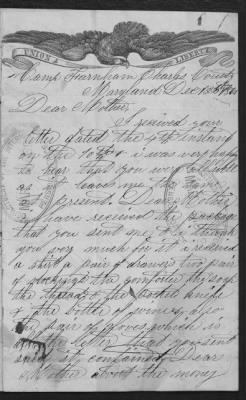 UNION & LIBERTY
Camp Farnham Charles County
Maryland Dec
Dear Mother
I received your
letter dated the 4th instant
on the 10th & i was very happy
to hear that you were all well
as it leaves me the same
at present. Dear Mother
i have received the package
that you sent me & i thank
you very much for it i received
a shirt a pair of drawers two pair
of stockings the comforter the soap
the thread & the pocket knife
& the bottle of wine also
the pair of gloves which is
all the letter you sent
said it contained. Dear
Mother about the money